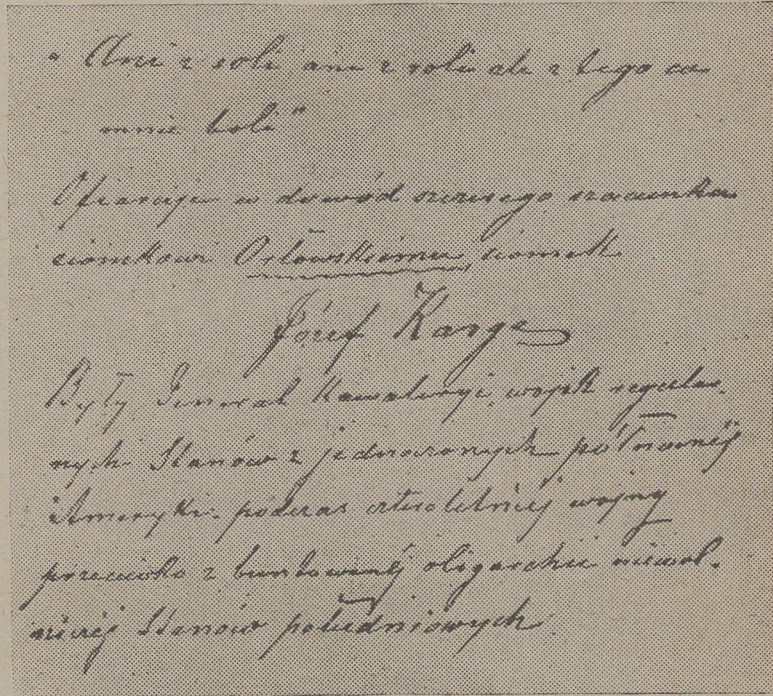 "Ani z soli ani z roli ale z tego co
mnie boli"
Ofiaruje w dowód szczerego szacunku
ziomkowi Orłowskiemu, ziomek
Józef Karge
Były Jenerał Kawaleryi, wojsk regular-
nych Stanów zjednoczonych północnéj
Ameryki podczas cztroletniéj wojny
przeciwko zbuntowanéj oligarchii niewol-
niczéj Stanów południowych